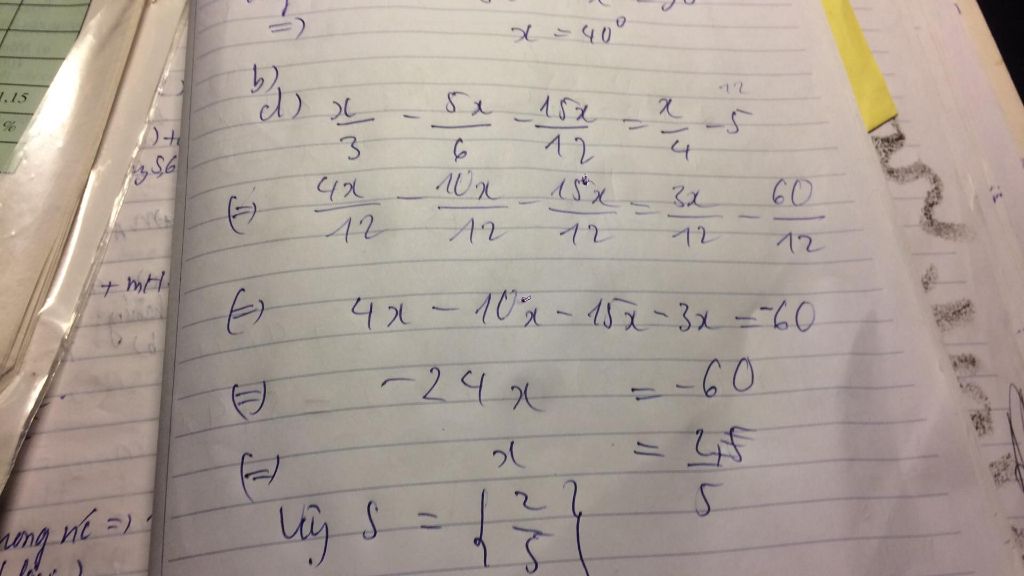 =) x = 40°
b)
d) x/3 - 5x/6 - 15x/12 = x/4 - 5
(=) 4x/12 - 10x/12 - 15x/12 = 3x/12 - 60/12
(=) 4x - 10x - 15x - 3x = -60
(=) -24x = -60
(=) x = 2,5/5
Vậy S = {2/5}
1.15
%
+ m+1
=)